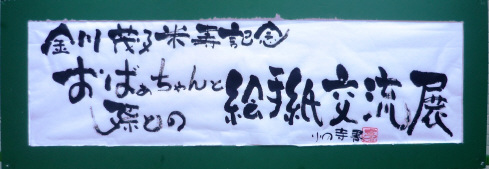 金川茂子米寿記念
おばぁちゃんと
孫との
絵手紙交流展
小の寺書